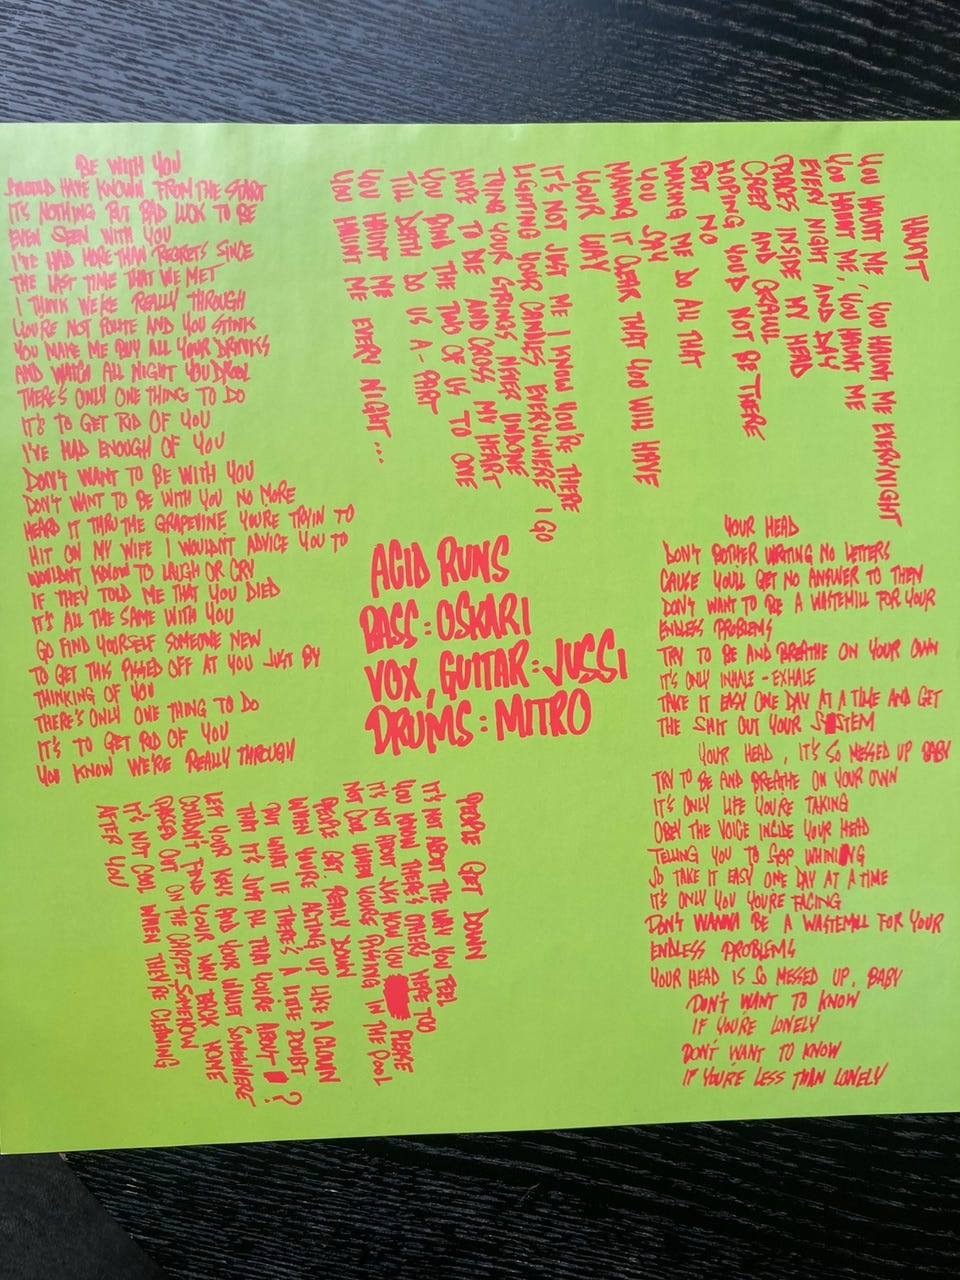 BE WITH YOU
SHOULD HAVE KNOWN FROM THE START
IT'S NOTHING BUT BAD LUCK TO BE
EVEN SEEN WITH YOU
I'VE HAD MORE THAN REGRETS SINCE
THE LAST TIME THAT WE MET
I THINK WE'RE REALLY THROUGH
YOU'RE NOT POLITE AND YOU STINK
YOU MAKE ME BUY ALL YOUR DRINKS
AND WATCH ALL NIGHT YOU DROOL
THERE'S ONLY ONE THING TO DO
IT'S TO GET RID OF YOU
I'VE HAD ENOUGH OF YOU
DON'T WANT TO BE WITH YOU
DON'T WANT TO BE WITH YOU NO MORE
HEARD IT THRU THE GRAPEVINE YOU'RE TRYIN TO
HIT ON MY WIFE I WOULDN'T ADVICE YOU TO
WOULDN'T KNOW TO LAUGH OR CRY
IF THEY TOLD ME THAT YOU DIED
IT'S ALL THE SAME WITH YOU
GO FIND YOURSELF SOMEONE NEW
TO GET THIS PISSED OFF AT YOU JUST BY
THINKING OF YOU
THERE'S ONLY ONE THING TO DO
IT'S TO GET RID OF YOU
YOU KNOW WE'RE REALLY THROUGH
HAUNT
YOU HAUNT ME, YOU HAUNT ME EVERY NIGHT
YOU HAUNT ME, YOU HAUNT ME
EVERY NIGHT AND DAY
PLACES INSIDE MY HEAD
CREEP AND CRAWL
HOPING YOU'D NOT BE THERE
BUT NO
MAKING ME DO ALL THAT
YOU SAY
MAKING IT CLEAR THAT YOU WILL HAVE
YOUR WAY
IT'S NOT JUST ME I KNOW YOU'RE THERE
LIGHTING YOUR CANDLES EVERYWHERE I GO
TYING YOUR STRINGS NEVER UNDONE
HOPE TO DIE AND CROSS MY HEART
YOU AND THE TWO OF US TO ONE
TILL DEATH DO US A-PART
YOU HAUNT ME EVERY NIGHT...
YOU HAUNT ME
ACID RUNS
BASS: OSKARI
VOX, GUITAR: JUSSI
DRUMS: MITRO
YOUR HEAD
DON'T BOTHER WRITING NO LETTERS
CAUSE YOU'LL GET NO ANSWER TO THEN
DON'T WANT TO BE A WASTEMILL FOR YOUR
ENDLESS PROBLEMS
TRY TO BE AND BREATHE ON YOUR OWN
IT'S ONLY INHALE - EXHALE
TAKE IT EASY ONE DAY AT A TIME AND GET
THE SHIT OUT YOUR SYSTEM
YOUR HEAD, IT'S SO MESSED UP BABY
TRY TO BE AND BREATHE ON YOUR OWN
IT'S ONLY LIFE YOU'RE TAKING
OBEY THE VOICE INSIDE YOUR HEAD
TELLING YOU TO STOP WHINING
SO TAKE IT EASY ONE DAY AT A TIME
IT'S ONLY YOU YOU'RE FACING
DON'T WANNA BE A WASTEMILL FOR YOUR
ENDLESS PROBLEMS
YOUR HEAD IS SO MESSED UP, BABY
DON'T WANT TO KNOW
IF YOU'RE LONELY
DON'T WANT TO KNOW
IF YOU'RE LESS THAN LONELY
PEOPLE GET DOWN
IT'S NOT ABOUT THE WAY YOU FEEL
YOU KNOW THERE'S OTHERS HERE TOO
IT'S NOT ABOUT JUST YOU PLEASE
NOT COOL WHEN YOU'RE PISSING IN THE POOL
PEOPLE GET REALLY DOWN
WHEN YOU'RE ACTING UP LIKE A CLOWN
BUT WHAT IF THERE'S A LITTLE DOUBT
THAT IT'S JUST ALL THAT YOU'RE ABOUT?
LEFT YOUR KEYS AND YOUR WALLET SOMEWHERE
COULDN'T FIND YOUR WAY BACK HOME
PASSED OUT ON THE CARPET SOMEHOW
IT'S NOT COOL WHEN THEY'RE CLEANING
AFTER YOU